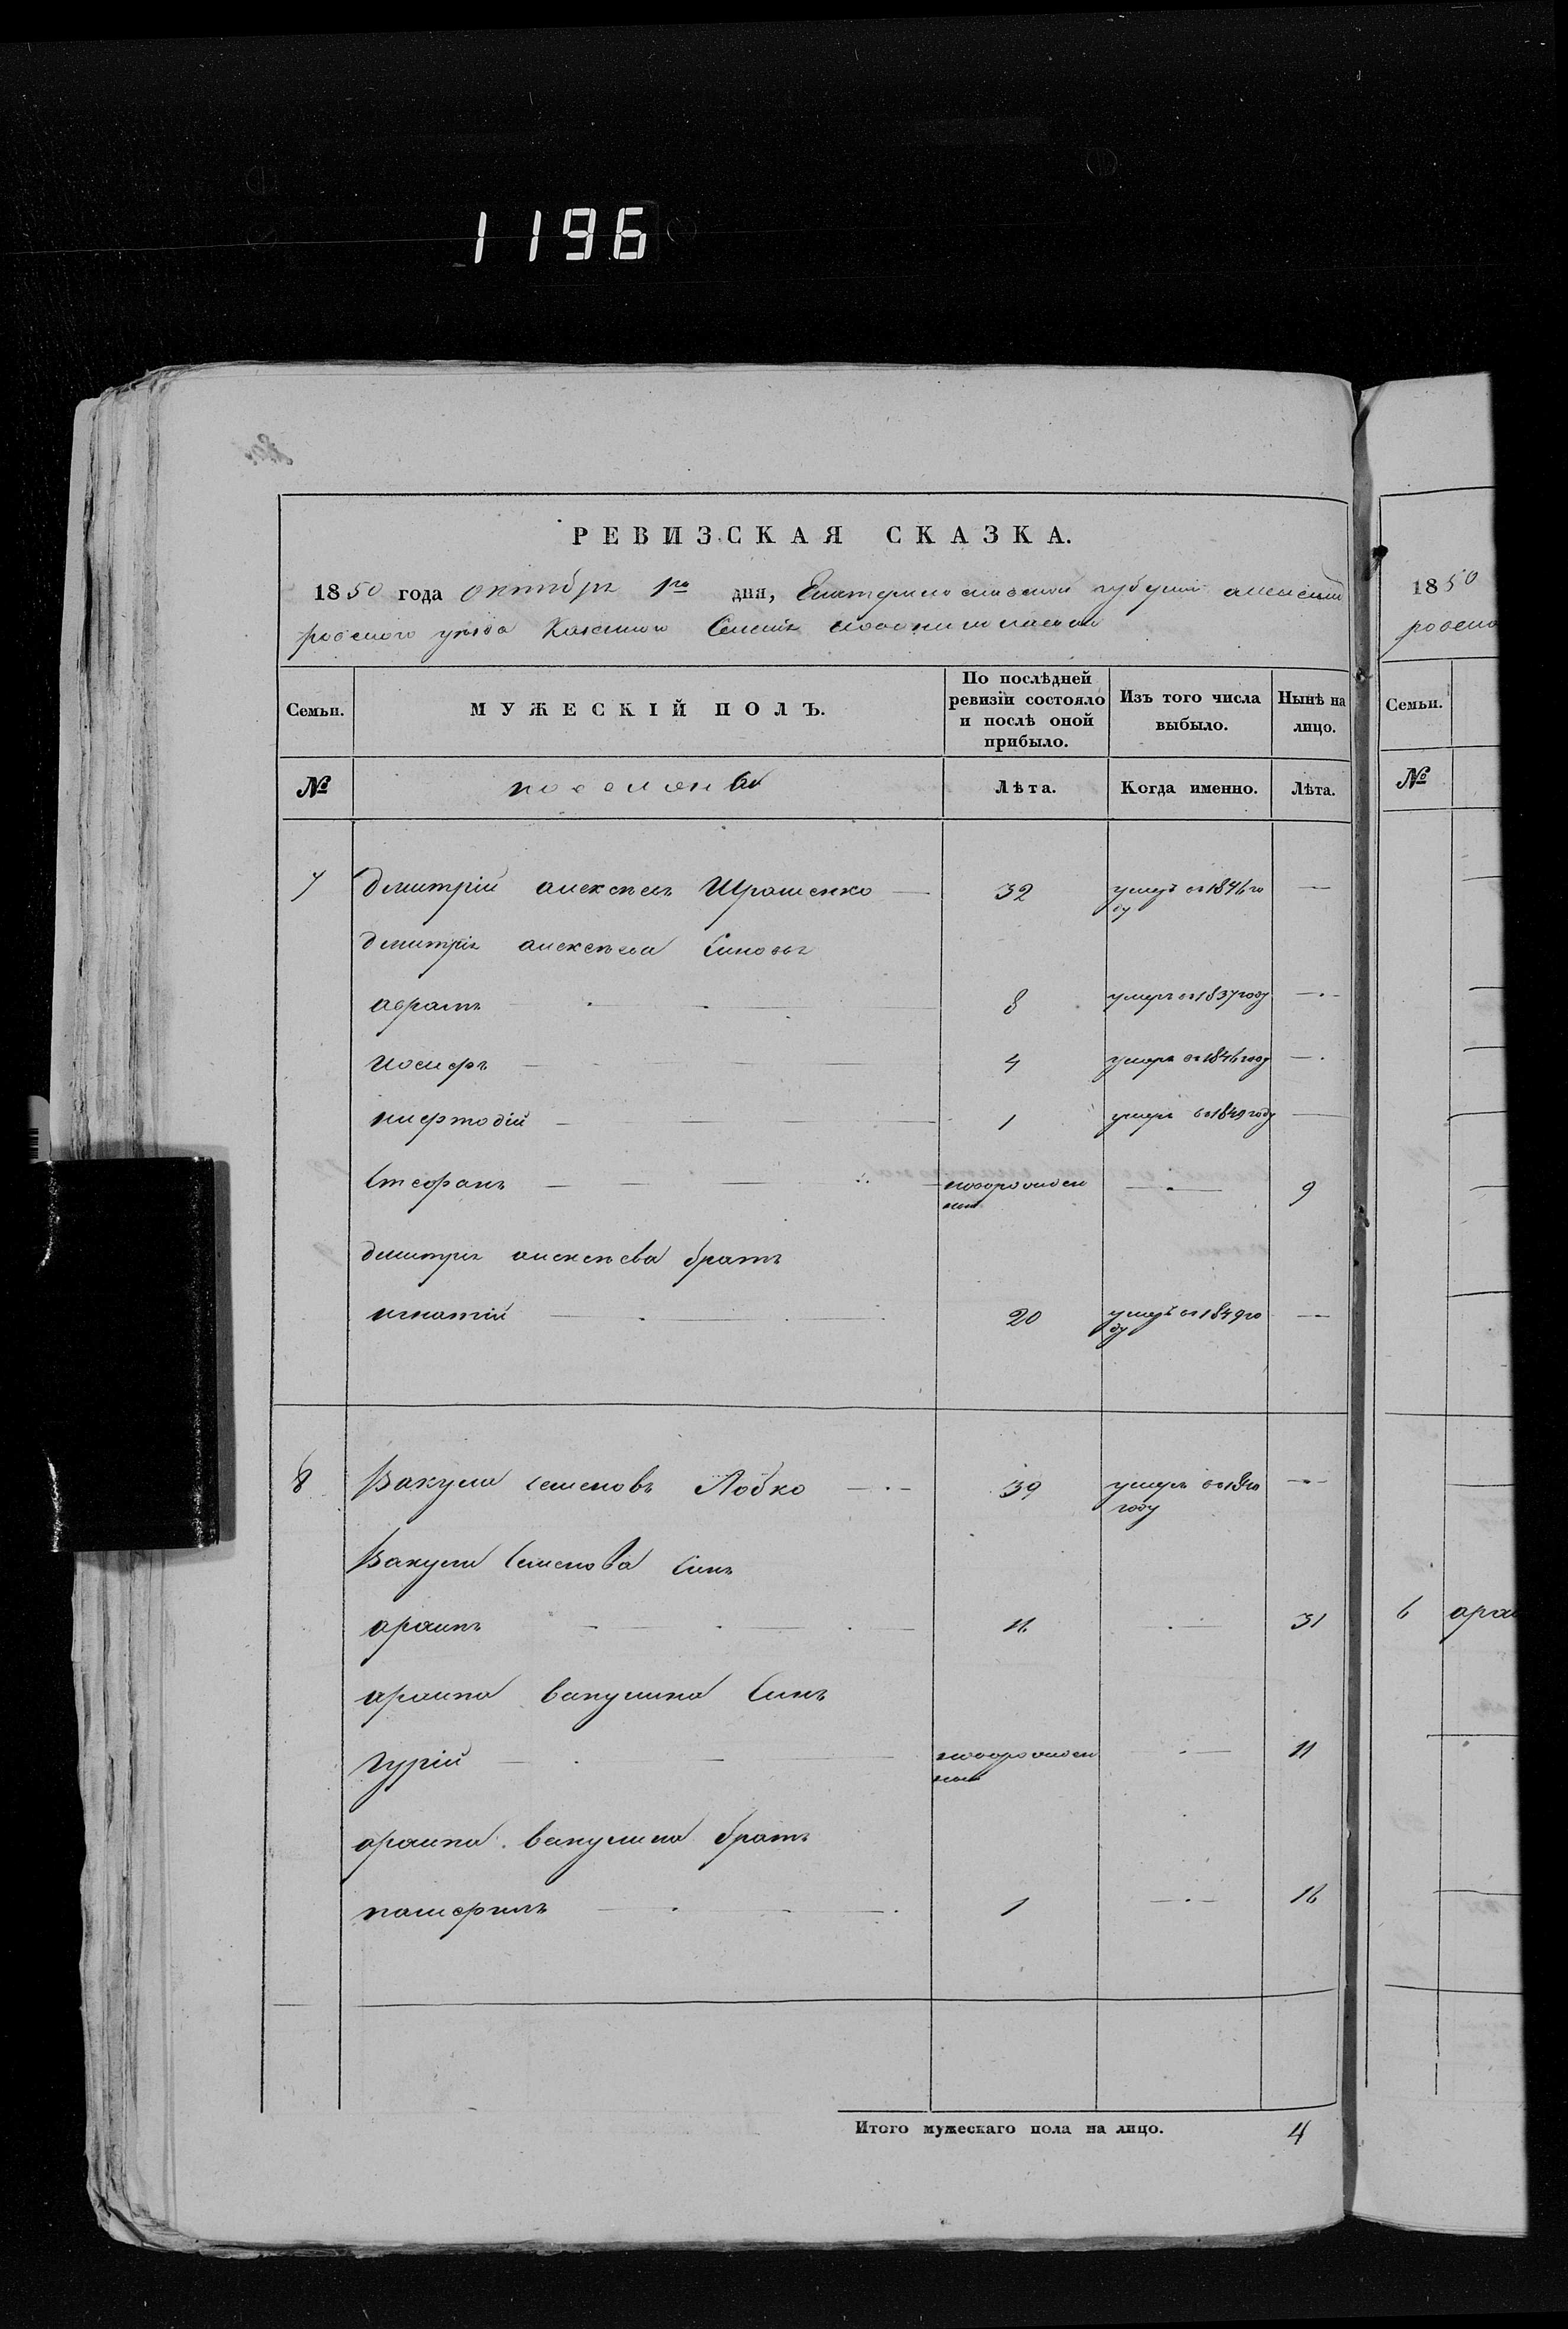 1196
РЕВИЗСКАЯ СКАЗКА.
1850 года октября 1го дня, Екатеринославской губернии Александ
ровского уезда Казенной
Семьи.
МУЖЕСКІЙ ПОЛЪ.
По послѣдней ревизіи состояло и послѣ оной прибыло.
Изъ того числа выбыло.
Нынѣ на лицо.
№
Лѣта.
Когда именно.
Лѣта.
7 Дмитрій алексеевъ Ирашенко — 32 умеръ въ 1846 го
ду
Дмитрія алексеева Синовья
абрамъ 8 умеръ въ 1837 году —
Иосифъ 4 умеръ въ 1846 году —
мефтодій 1 умеръ въ 1849 году —
Стефанъ — новорожден
ный — 9
Дмитрия алексеева братъ
игнатій 20 умеръ въ 1849 го
ду —
8 Вакула семеновъ Лобко — 39 умеръ въ
году —
Вакули Семенова Синъ
архипъ 11 — 31
архипа вакулина Синъ
гурій — новорожден
ный — 11
архипа вакулина братъ
памфилъ 1 — 16
Итого мужескаго пола на лицо. 4
1850
Семьи.
№
6